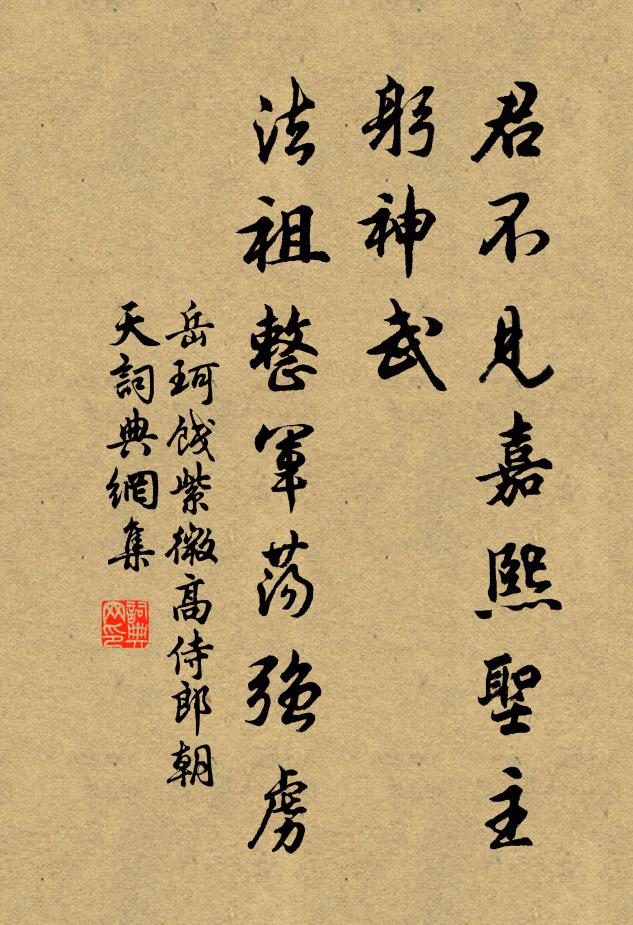 君不見嘉熙聖主
躬神武
法祖整軍蕩強虜
岳珂餞紫微高侍郎朝
天詞典網集
詞典網印